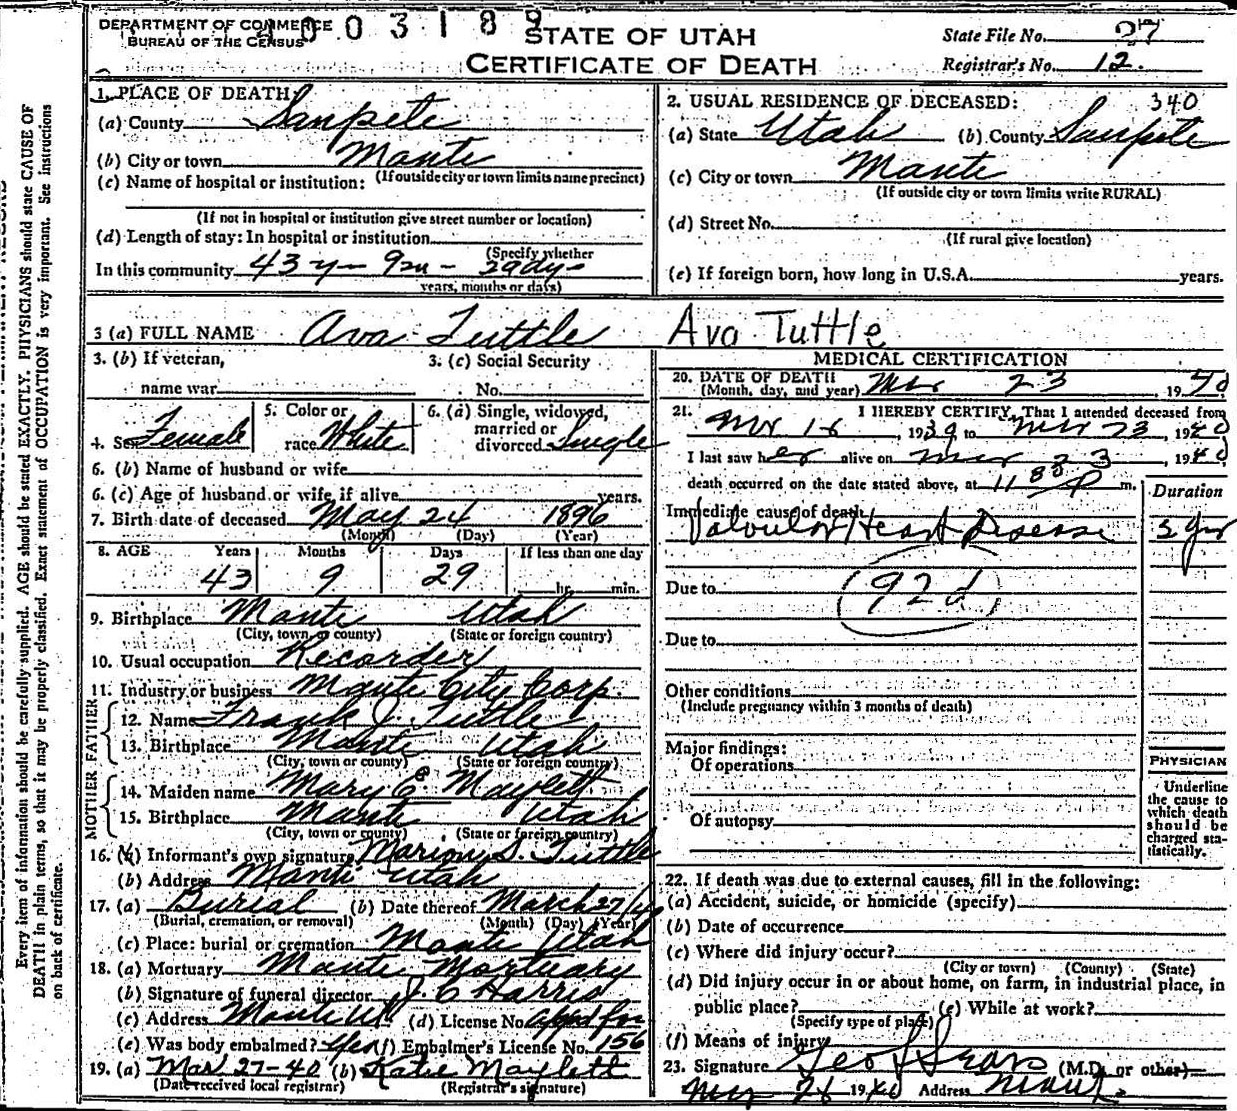 DEPARTMENT OF COMMERCE
BUREAU OF THE CENSUS
4003189
STATE OF UTAH
CERTIFICATE OF DEATH
State File No. 27
Registrar's No. 12.
1. PLACE OF DEATH
(a) County Sanpete
(b) City or town Manti
(If outside city or town limits name precinct)
(c) Name of hospital or institution:
(If not in hospital or institution give street number or location)
(d) Length of stay: In hospital or institution
(Specify whether
In this community 43 y - 9 m - 29 dy -
years, months or days)
2. USUAL RESIDENCE OF DECEASED: 340
(a) State Utah (b) County Sanpete
(c) City or town Manti
(If outside city or town limits write RURAL)
(d) Street No.
(If rural give location)
(e) If foreign born, how long in U.S.A. years.
3 (a) FULL NAME Ava Tuttle Ava Tuttle
3. (b) If veteran,
name war
3. (c) Social Security
No.
4. Sex Female
5. Color or
race White
6. (a) Single, widowed,
married or
divorced Single
6. (b) Name of husband or wife
6. (c) Age of husband or wife if alive years.
7. Birth date of deceased May 24 1896
(Month) (Day) (Year)
8. AGE Years Months Days If less than one day
43 9 29 hr. min.
9. Birthplace Manti Utah
(City, town or county) (State or foreign country)
10. Usual occupation Recorder
11. Industry or business Manti City Corp.
FATHER
12. Name Frank J. Tuttle
13. Birthplace Manti Utah
(City, town or county) (State or foreign country)
MOTHER
14. Maiden name Mary E Maylett
15. Birthplace Manti Utah
(City, town or county) (State or foreign country)
16. (a) Informant's own signature Marion S. Tuttle
(b) Address Manti Utah
17. (a) Burial (b) Date thereof March 27/40
(Burial, cremation, or removal) (Month) (Day) (Year)
(c) Place: burial or cremation Manti Utah
18. (a) Mortuary Manti Mortuary
(b) Signature of funeral director J. C Harris
(c) Address Manti Ut (d) License No. appd for
(e) Was body embalmed? Yes (f) Embalmer's License No. 156
19. (a) Mar 27-40 (b) Katie Maylett
(Date received local registrar) (Registrar's signature)
MEDICAL CERTIFICATION
20. DATE OF DEATH
(Month, day, and year) Mar 23 1940
21. I HEREBY CERTIFY, That I attended deceased from
Mar 16, 1939 to Mar 23, 1940
I last saw her alive on Mar 23 1940
death occurred on the date stated above, at 11 80 P m.
Duration
Immediate cause of death
Valvular Heart Disease 3 yrs
Due to 92d
Due to
Other conditions
(Include pregnancy within 3 months of death)
Major findings:
Of operations
Of autopsy
PHYSICIAN
Underline
the cause to
which death
should be
charged sta-
tistically.
22. If death was due to external causes, fill in the following:
(a) Accident, suicide, or homicide (specify)
(b) Date of occurrence
(c) Where did injury occur?
(City or town) (County) (State)
(d) Did injury occur in or about home, on farm, in industrial place, in
public place? (e) While at work?
(Specify type of place)
(f) Means of injury
23. Signature (M.D. or other)
Mar 26 1940 Address Manti
Every item of information should be carefully supplied. AGE should be stated EXACTLY. PHYSICIANS should state CAUSE OF
DEATH in plain terms, so that it may be properly classified. Exact statement of OCCUPATION is very important. See instructions
on back of certificate.